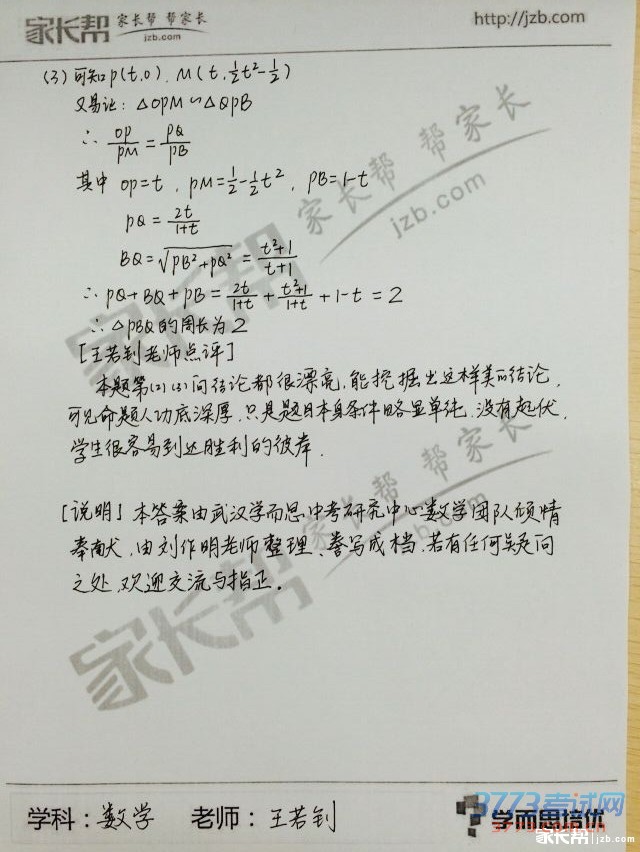 家长帮 家长帮 帮家长 jzb.com
http://jzb.com
(3) 可知 P(t,0), M(t, ½t²-½)
又易证: △OPM∽△QPB
∴ OP/PM = PQ/PB
其中 OP=t, PM=½-½t², PB=1-t
PQ = 2t/(1+t)
BQ = √(PB²+PQ²) = (t²+1)/(t+1)
∴ PQ+BQ+PB = 2t/(1+t) + (t²+1)/(1+t) + 1-t = 2
∴ △PBQ的周长为2
[王若钊老师点评]
本题第(2)(3)问结论都很漂亮,能挖掘出这样美的结论,
可见命题人功底深厚.只是题目本身条件略显单纯,没有起伏,
学生很容易到达胜利的彼岸.
[说明] 本答案由武汉学而思中考研究中心数学团队倾情
奉献,由刘作明老师整理、誊写成档,若有任何疑问
之处,欢迎交流与指正。
家长帮 家长帮 帮家长 jzb.com
家长帮 家长帮 帮家长 jzb.com
学科: 数学 老师: 王若钊
学而思培优
3773考试网
家长帮 jzb.com